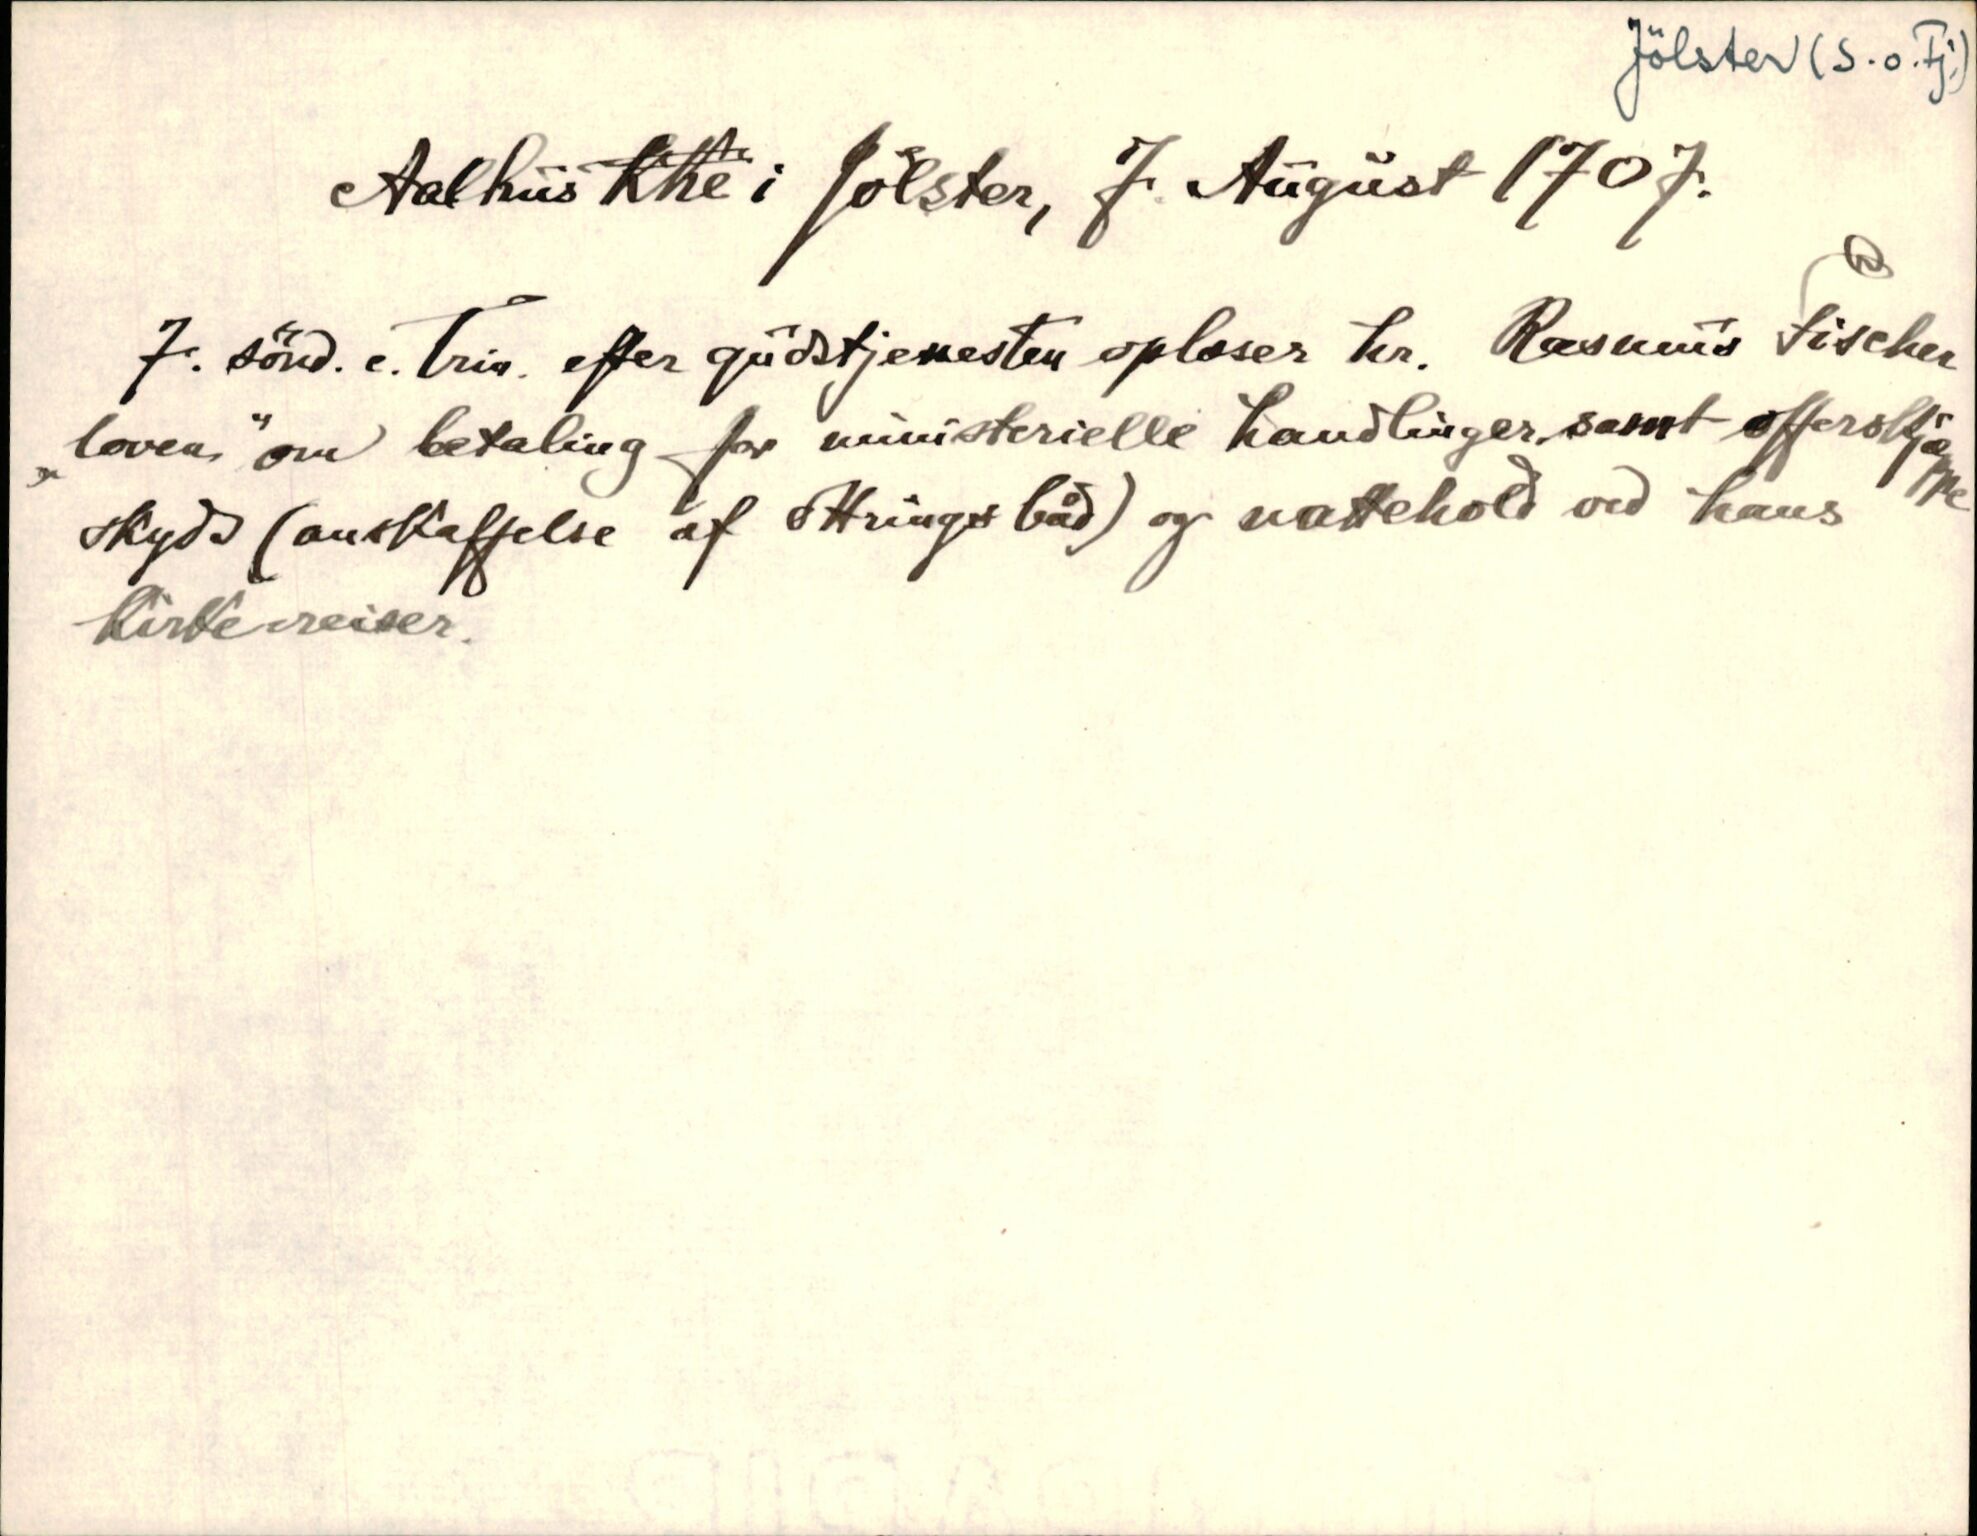 Jölster (S. o. Fj.)
Aalhus Khe i Jölster, 7. August 1707.
7. sönd. e. Trin. efter gudstjenesten oplæser hr. Rasmus Fischer
„loven" om betaling for ministerielle handlinger samt offerskjæppe
skyds (anskaffelse af ottrings båd) og nattehold ved hans
kirkereiser.